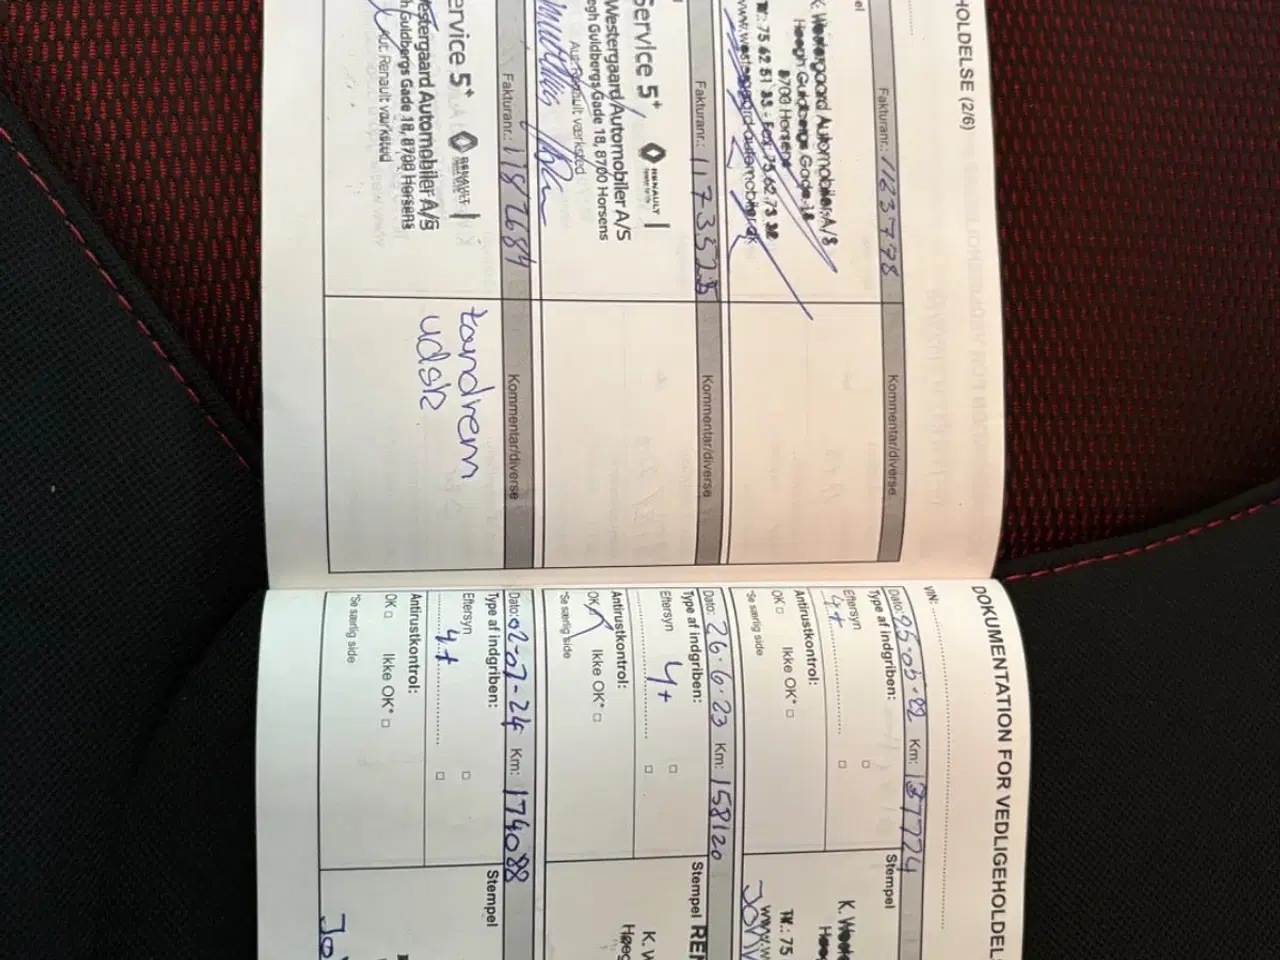 HOLDELSE (2/6)
Fakturanr.: 1123778
K. Westergaard Automobiler A/S
Høegh Guldbergs Gade 18
8700 Horsens
Tlf.: 75 62 51 33 - Fax: 75 62 73 32
www.westergaard-automobiler.dk
Kommentar/diverse
Fakturanr.: 1173525
Service 5+
RENAULT
Westergaard Automobiler A/S
egh Guldbergs Gade 18, 8700 Horsens
Aut. Renault værksted
Kommentar/diverse
Fakturanr.: 1182684
ervice 5+
RENAULT
estergaard Automobiler A/S
h Guldbergs Gade 18, 8700 Horsens
Aut. Renault værksted
Kommentar/diverse
tandrem
udsk
DOKUMENTATION FOR VEDLIGEHOLDELS
VIN:
Dato: 25-05-22 Km: 137724
Type af indgriben:
Eftersyn
4+
Antirustkontrol:
OK Ikke OK*
*Se særlig side
Stempel
K. Weste
Høeg
Tlf.: 75
www.w
Dato: 26-6-23 Km: 158120
Type af indgriben:
Eftersyn
4+
Antirustkontrol:
OK Ikke OK*
*Se særlig side
Stempel
REN
K. W
Høeg
Dato: 02-07-24 Km: 174088
Type af indgriben:
Eftersyn
4+
Antirustkontrol:
OK Ikke OK*
*Se særlig side
Stempel